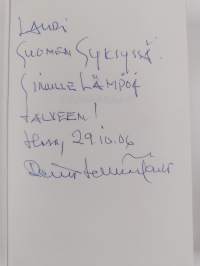 LAURI
SUOMEN SYKSYSSÄ
SINULLE LÄMPÖÄ
TALVEEN!
29.10.06